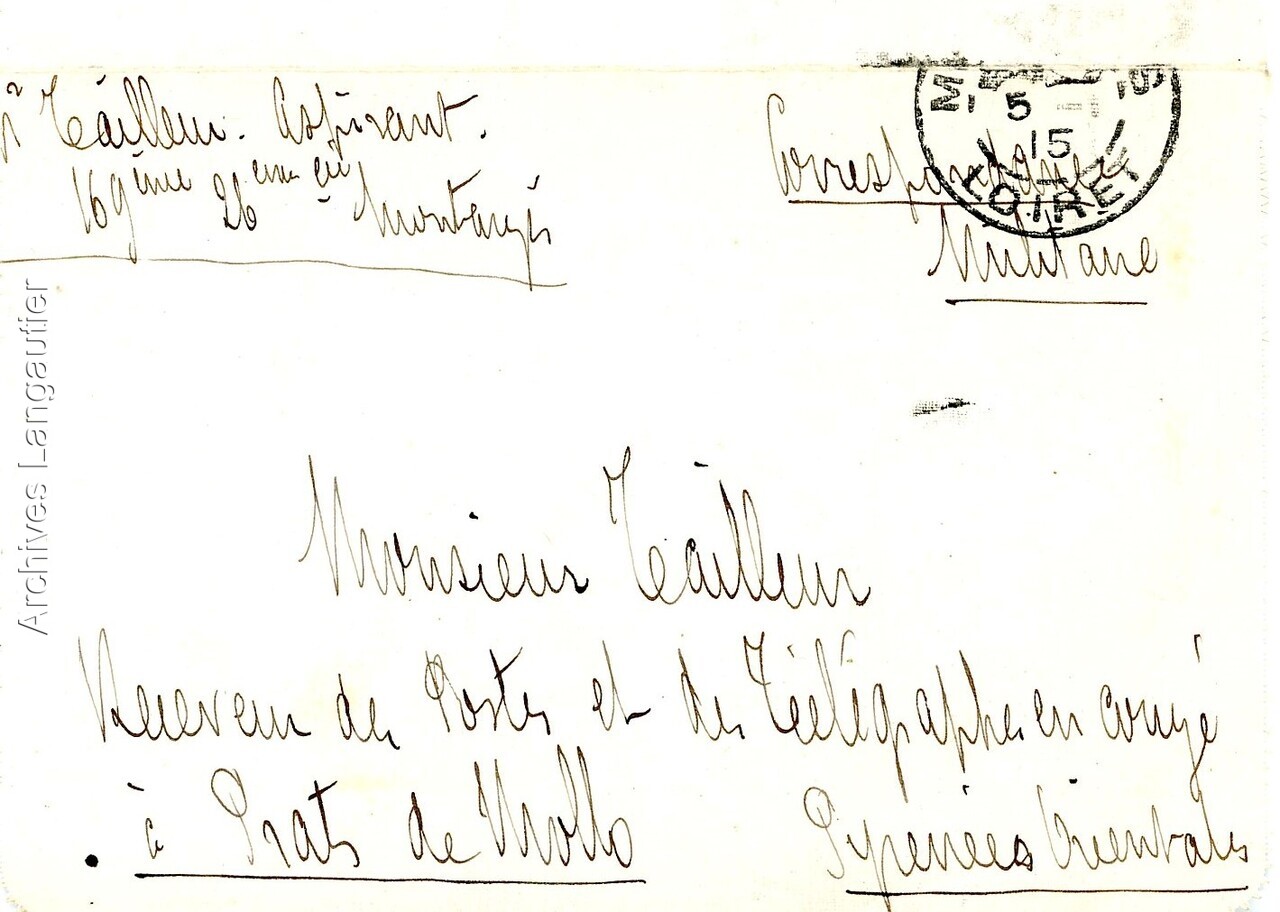 Tailleur. Aspirant.
169ème 26eme Cie Montargis
Correspondance
Militaire
5
15
LOIRET
Archives Langautier
Monsieur Tailleur
Receveur des Postes et des Télégraphes en congé
à Prats de Mollo
Pyrénées Orientales